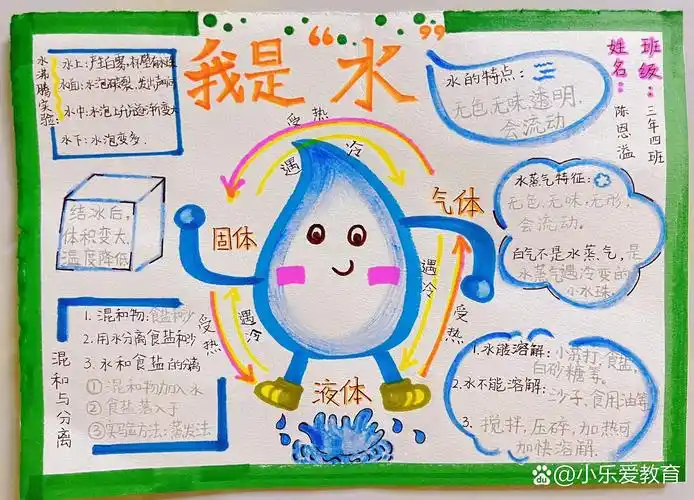 我是“水”
班级:三年四班
姓名:陈恩溢
水沸腾实验
水上:产生白雾,
水面:水泡破裂,发出声响
水中:水泡上升逐渐变大
水下:水泡变多.
水的特点:
无色无味透明,
会流动
结冰后,
体积变大,
温度降低
受热
遇冷
固体
气体
遇冷
受热
受热
遇冷
液体
水蒸气特征:
无色、无味、无形,
会流动。
白气不是水蒸气,是
水蒸气遇冷变的
小水珠
混和与分离
1.混和物:食盐和沙
2.用水分离食盐和沙
3.水和食盐的分离
①混和物加入水
②食盐落入于
③实验方法:蒸发法
1.水能溶解:小苏打,食盐,
白砂糖等。
2.水不能溶解:沙子,食用油等
3.搅拌,压碎,加热可
加快溶解.
Bai du @小乐爱教育